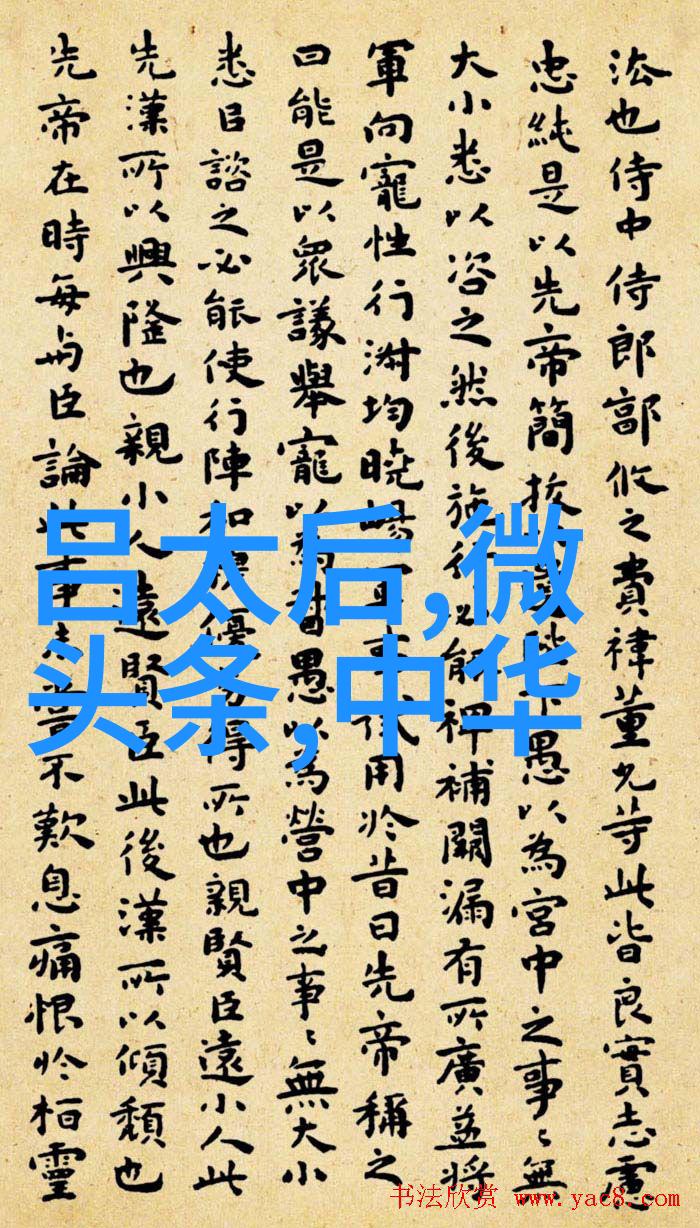 法也侍中侍郎郭攸之費禕董允等此皆良實志慮
忠純是以先帝簡拔下愚以為宮中之事〻無
大小悉以咨之然後施行必能裨補闕漏有所廣益將
軍向寵性行淑均曉暢軍事試用於昔日先帝稱之
曰能是以眾議舉寵以為督愚以為營中之事〻無大小
悉以諮之必能使行陣和穆優劣得所也親賢臣遠小人此
先漢所以興隆也親小人遠賢臣此後漢所以傾頹也
先帝在時每与臣論此事未嘗不歎息痛恨於桓靈
吕太后,微
头条,中华
书法欣赏 www.yac8.com